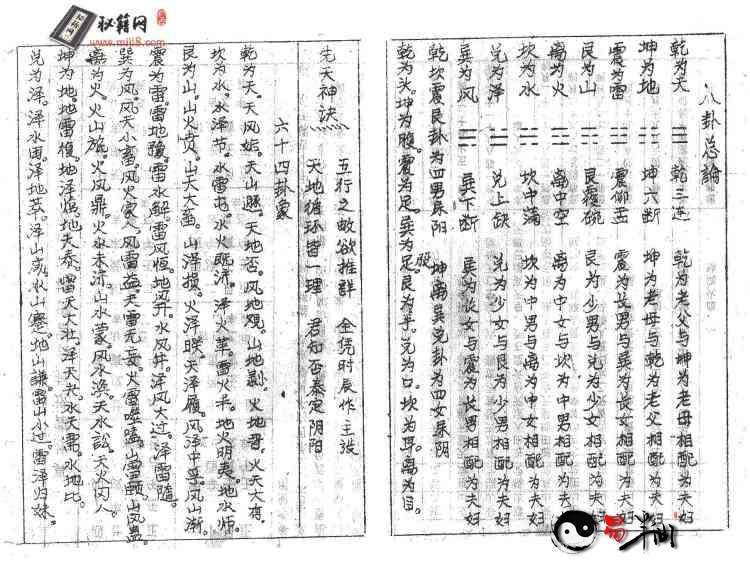 秘籍网
www.mij8.com
八卦总论
乾为天 ☰ 乾三连 乾为老父与坤为老母相配为夫妇
坤为地 ☷ 坤六断 坤为老母与乾为老父相配为夫妇
震为雷 ☳ 震仰盂 震为长男与巽为长女相配为夫妇
艮为山 ☶ 艮覆碗 艮为少男与兑为少女相配为夫妇
离为火 ☲ 离中空 离为中女与坎为中男相配为夫妇
坎为水 ☵ 坎中满 坎为中男与离为中女相配为夫妇
兑为泽 ☱ 兑上缺 兑为少女与艮为少男相配为夫妇
巽为风 ☴ 巽下断 巽为长女与震为长男相配为夫妇
乾坎震艮卦为四男属阳 坤离巽兑卦为四女属阴
乾为头。坤为腹。震为足。巽为股。艮为手。兑为口。坎为耳。离为目。
先天神诀
五行之 欲推详 全凭时辰作主张
天地循环皆一理 君知否泰定阴阳
六十四卦象
乾为天。天风姤。天山遁。天地否。风地观。山地剥。火地晋。火天大有。
坎为水。水泽节。水雷屯。水火既济。泽火革。雷火丰。地火明夷。地水师
艮为山。山火贲。山天大畜。山泽损。火泽睽。天泽履。风泽中孚。风山渐。
震为雷。雷地豫。雷水解。雷风恒。地风升。水风井。泽风大过。泽雷随。
巽为风。风天小畜。风火家人。风雷益。天雷无妄。火雷噬嗑。山雷颐。山风蛊。
离为火。火山旅。火风鼎。火水未济。山水蒙。风水涣。天水讼。天火同人。
坤为地。地雷复。地泽临。地天泰。雷天大壮。泽天夬。水天需。水地比
兑为泽。泽水困。泽地萃。泽山咸。水山蹇。地山谦。雷山小过。雷泽归妹。
易